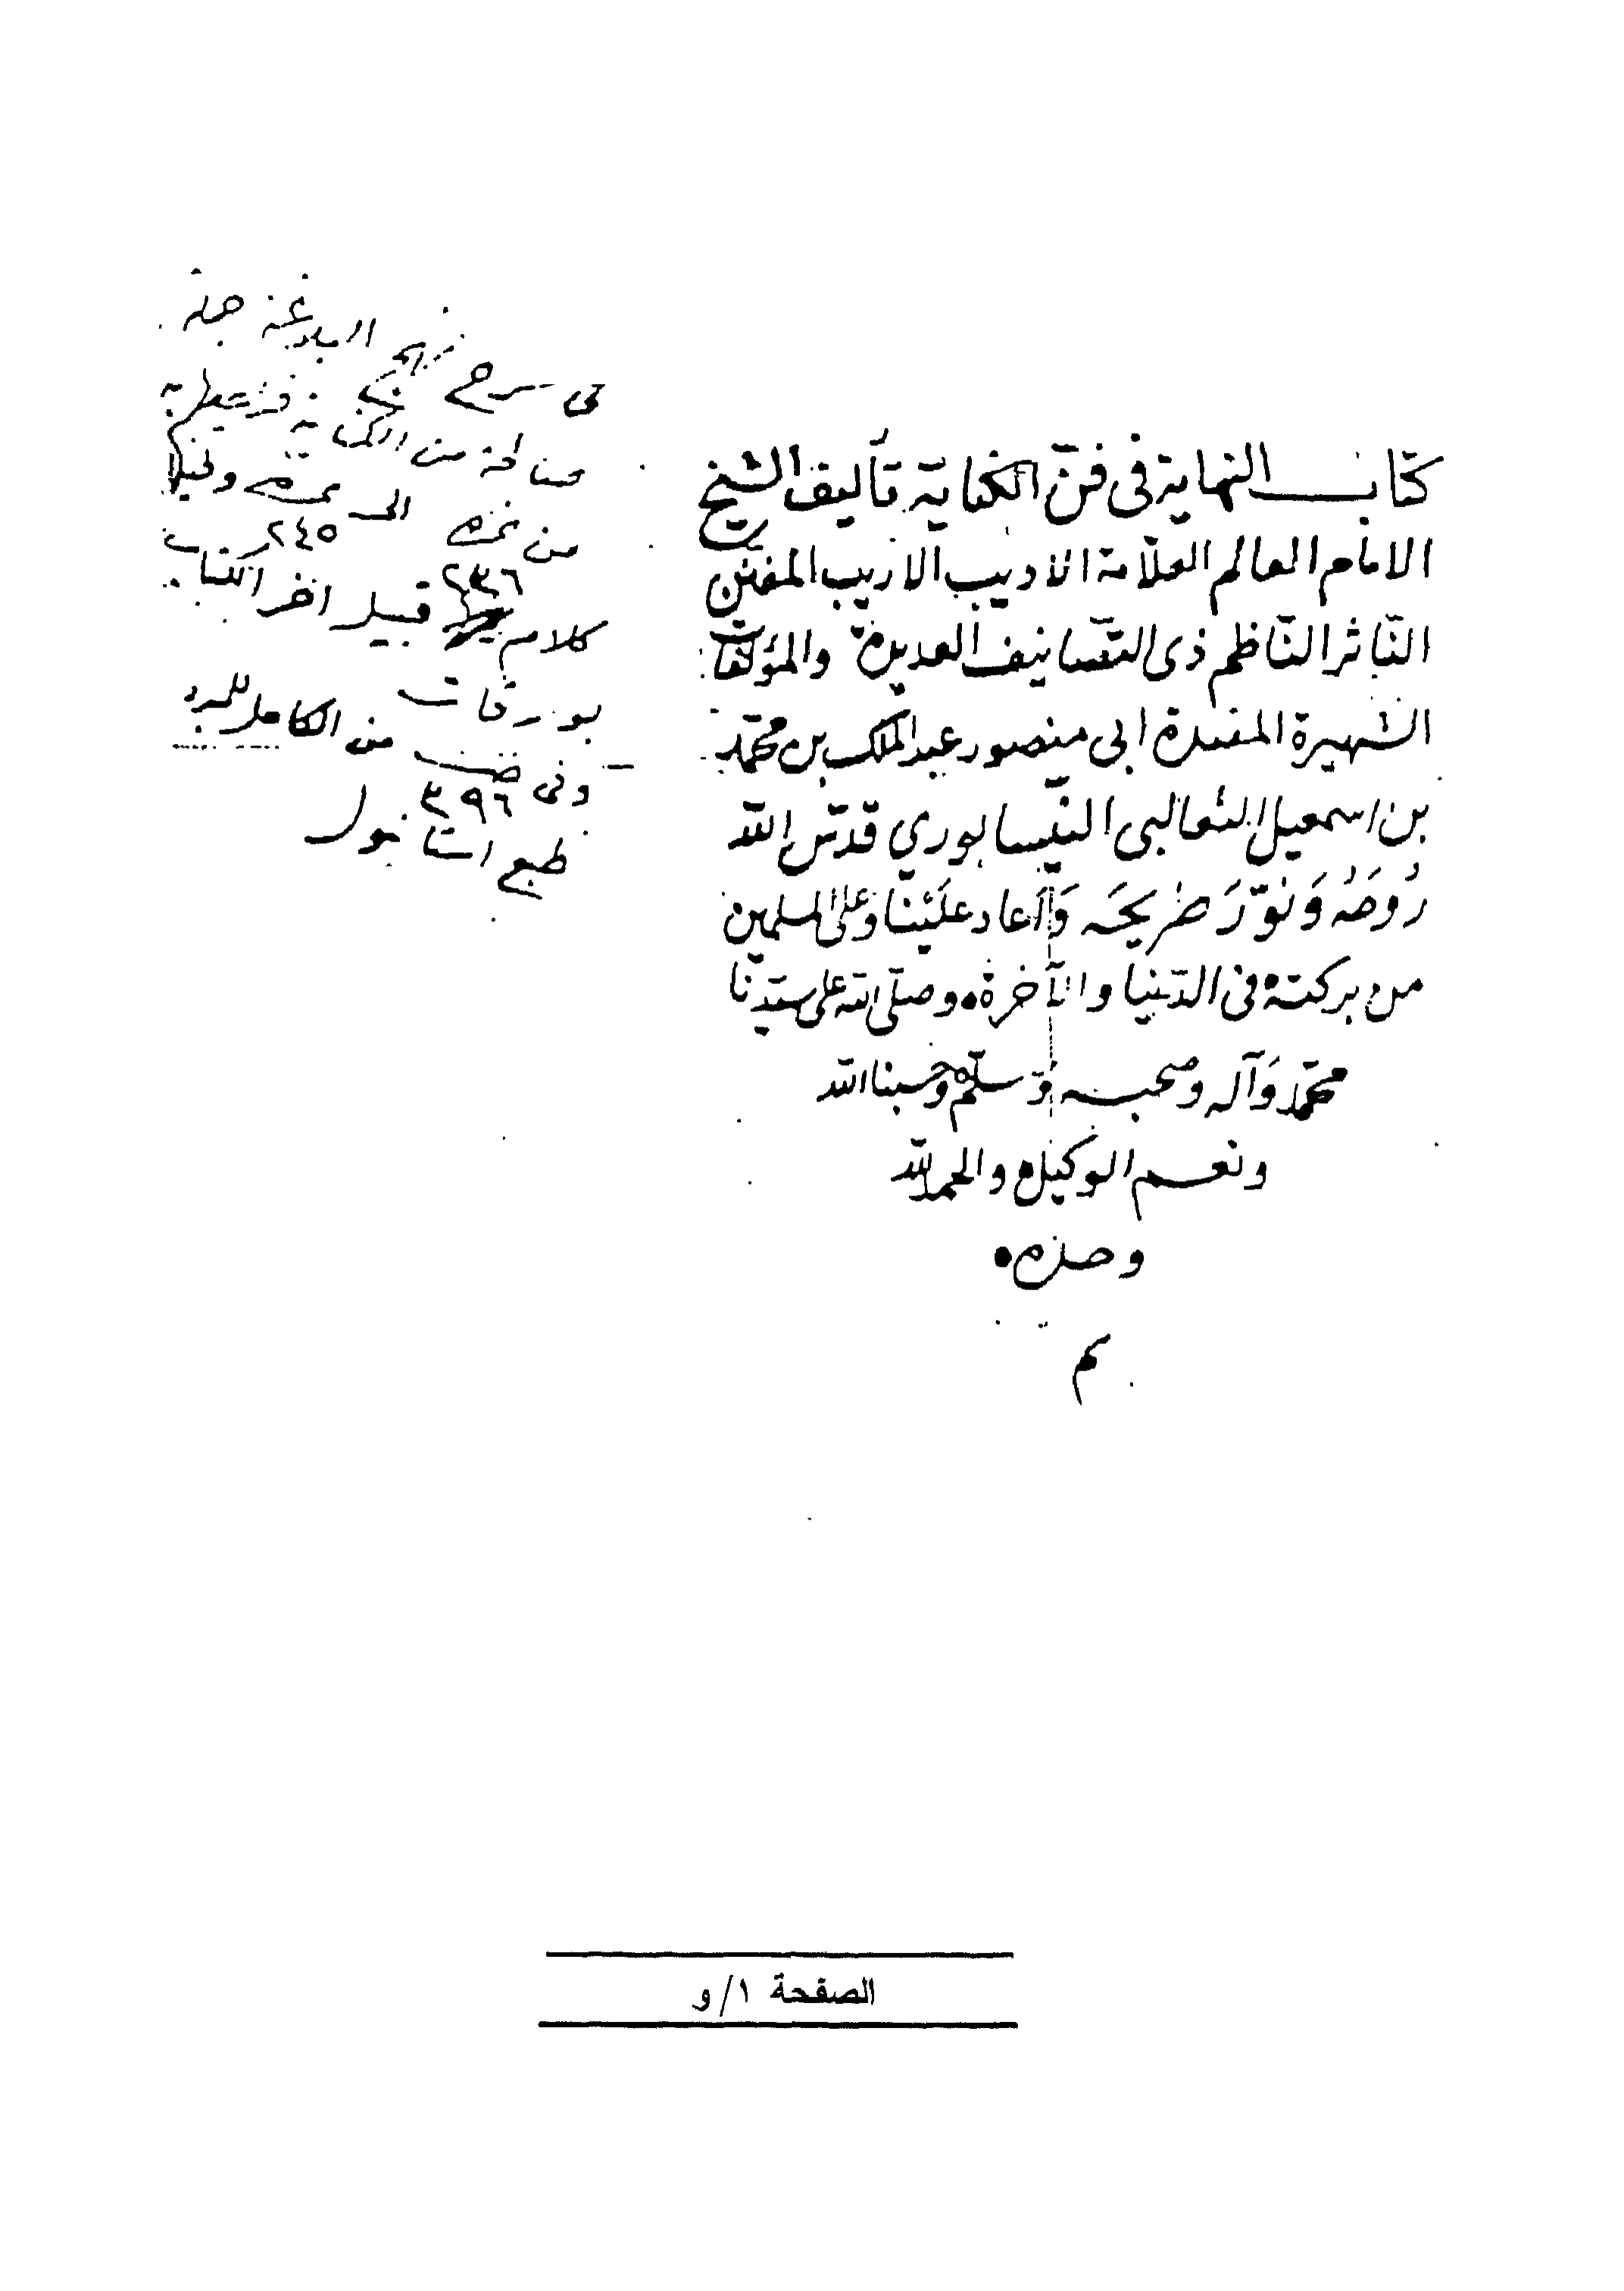 كتاب النهاية فى فنّ الكناية تأليف الشيخ
الامام العالم العلّامة الاديب الاريب المفنّن
النّاثر النّاظم ذى التصانيف العديدة والمؤلّفات
الشهيرة المفيدة ابى منصور عبد الملك بن محمّد
بن اسمعيل الثعالبى النّيسابوري قدّس الله
رُوحَهُ وَنوّرَ ضريحَه وَأعاد علَيْنا وعلى المسلمين
من بركته فى الدّنيا والآخرة • وصلّى الله على سيّدنا
محمّد وَآله وصحبه وَسلّم وحسبنا الله
ونعم الوكيل والحمد لله
وحده •
م
فى شرح نهج البلاغة جملة
صالحة من الكناية
من الى
٢٣٦ ٢٤٥
كلام قبيل اخر الكتاب
بورقات
وفى من الكامل للمبرد
٣٩٦
طبع استانبول
الصفحة ١/و